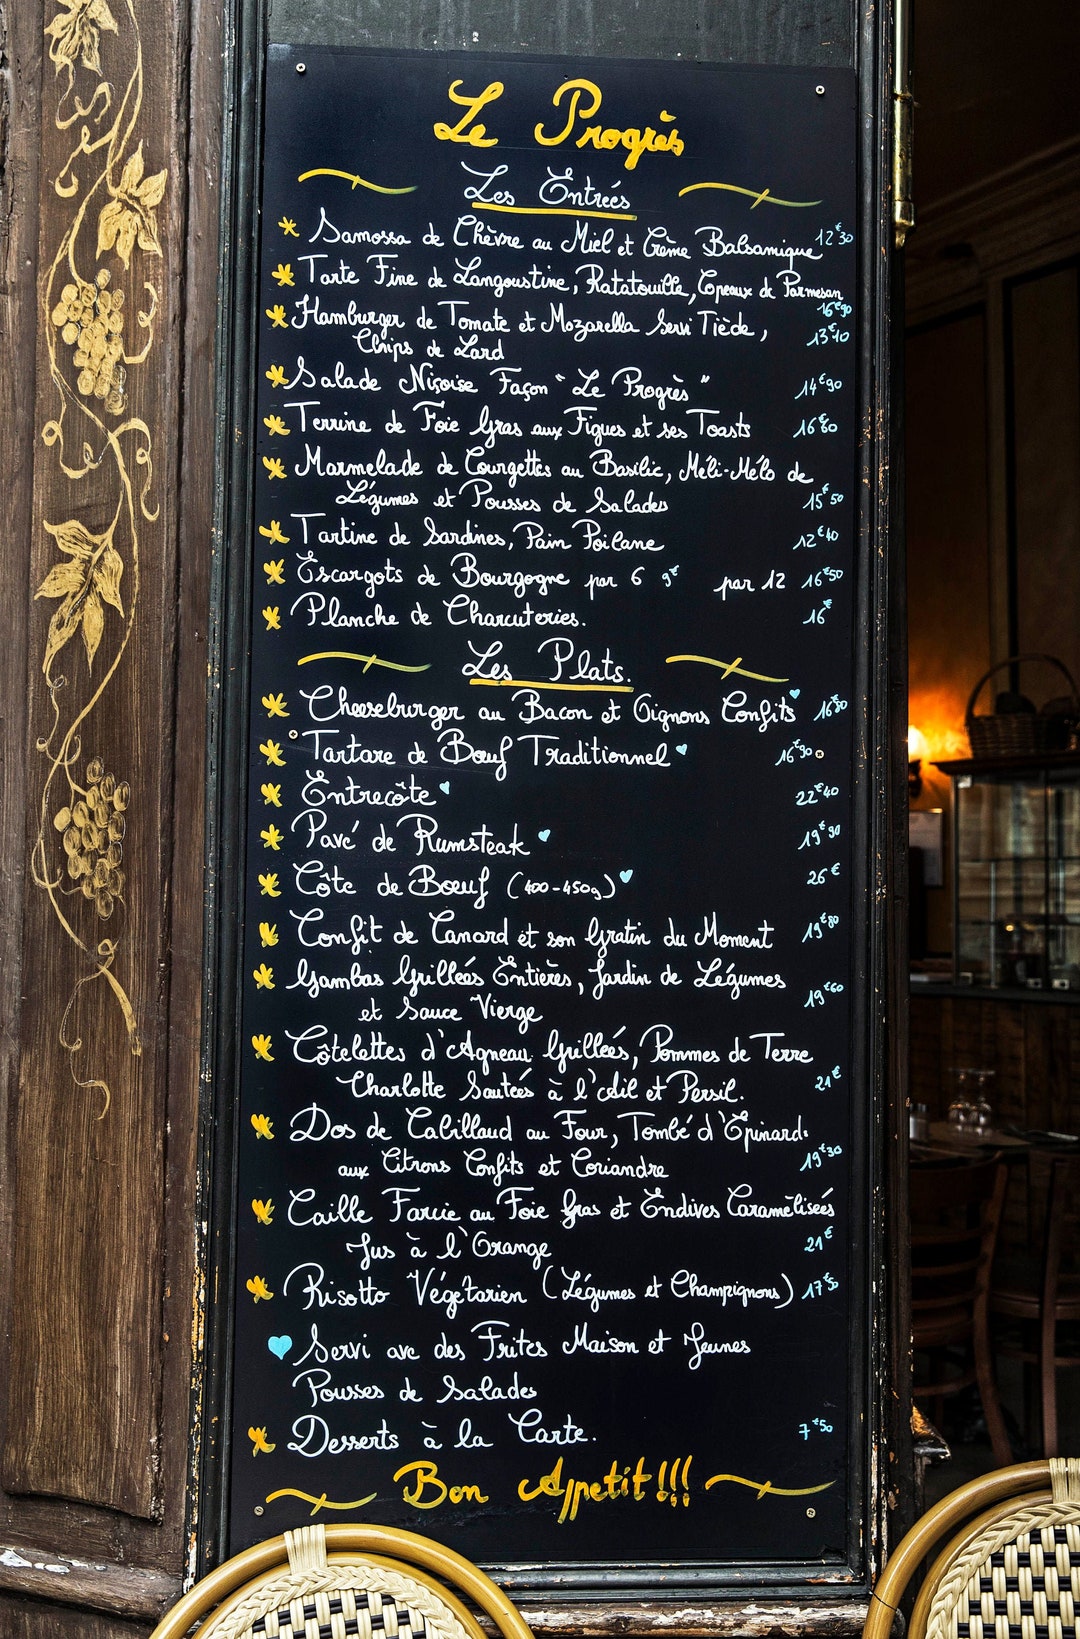 Le Progrès
Les Entrées
Samossa de Chèvre au Miel et Crème Balsamique 12€30
Tarte Fine de Langoustine, Ratatouille, Copeaux de Parmesan
16€90
Hamburger de Tomate et Mozarella Servi Tiède, 13€10
Chips de Lard
Salade Niçoise Façon "Le Progrès" 14€90
Terrine de Foie Gras aux Figues et ses Toasts 16€80
Marmelade de Courgettes au Basilic, Méli-Mélo de
Légumes et Pousses de Salades 15€50
Tartine de Sardines, Pain Poilane 12€40
Escargots de Bourgogne par 6 9€ par 12 16€50
Planche de Charcuteries. 16€
Les Plats.
Cheeseburger au Bacon et Oignons Confits 16€80
Tartare de Bœuf Traditionnel 16€90
Entrecôte 22€40
Pavé de Rumsteak 19€90
Côte de Bœuf (400-450g) 26€
Confit de Canard et son Gratin du Moment 19€80
Gambas Grillées Entières, Jardin de Légumes
et Sauce Vierge 19€60
Côtelettes d'Agneau Grillées, Pommes de Terre
Charlotte Sautées à l'Ail et Persil. 21€
Dos de Cabillaud au Four, Tombé d'Epinards
aux Citrons Confits et Coriandre 19€30
Caille Farcie au Foie Gras et Endives Caramélisées
Jus à l'Orange 21€
Risotto Végétarien (Légumes et Champignons) 17€50
Servi avc des Frites Maison et Jeunes
Pousses de Salades
Desserts à la Carte. 7€50
Bon Appetit!!!